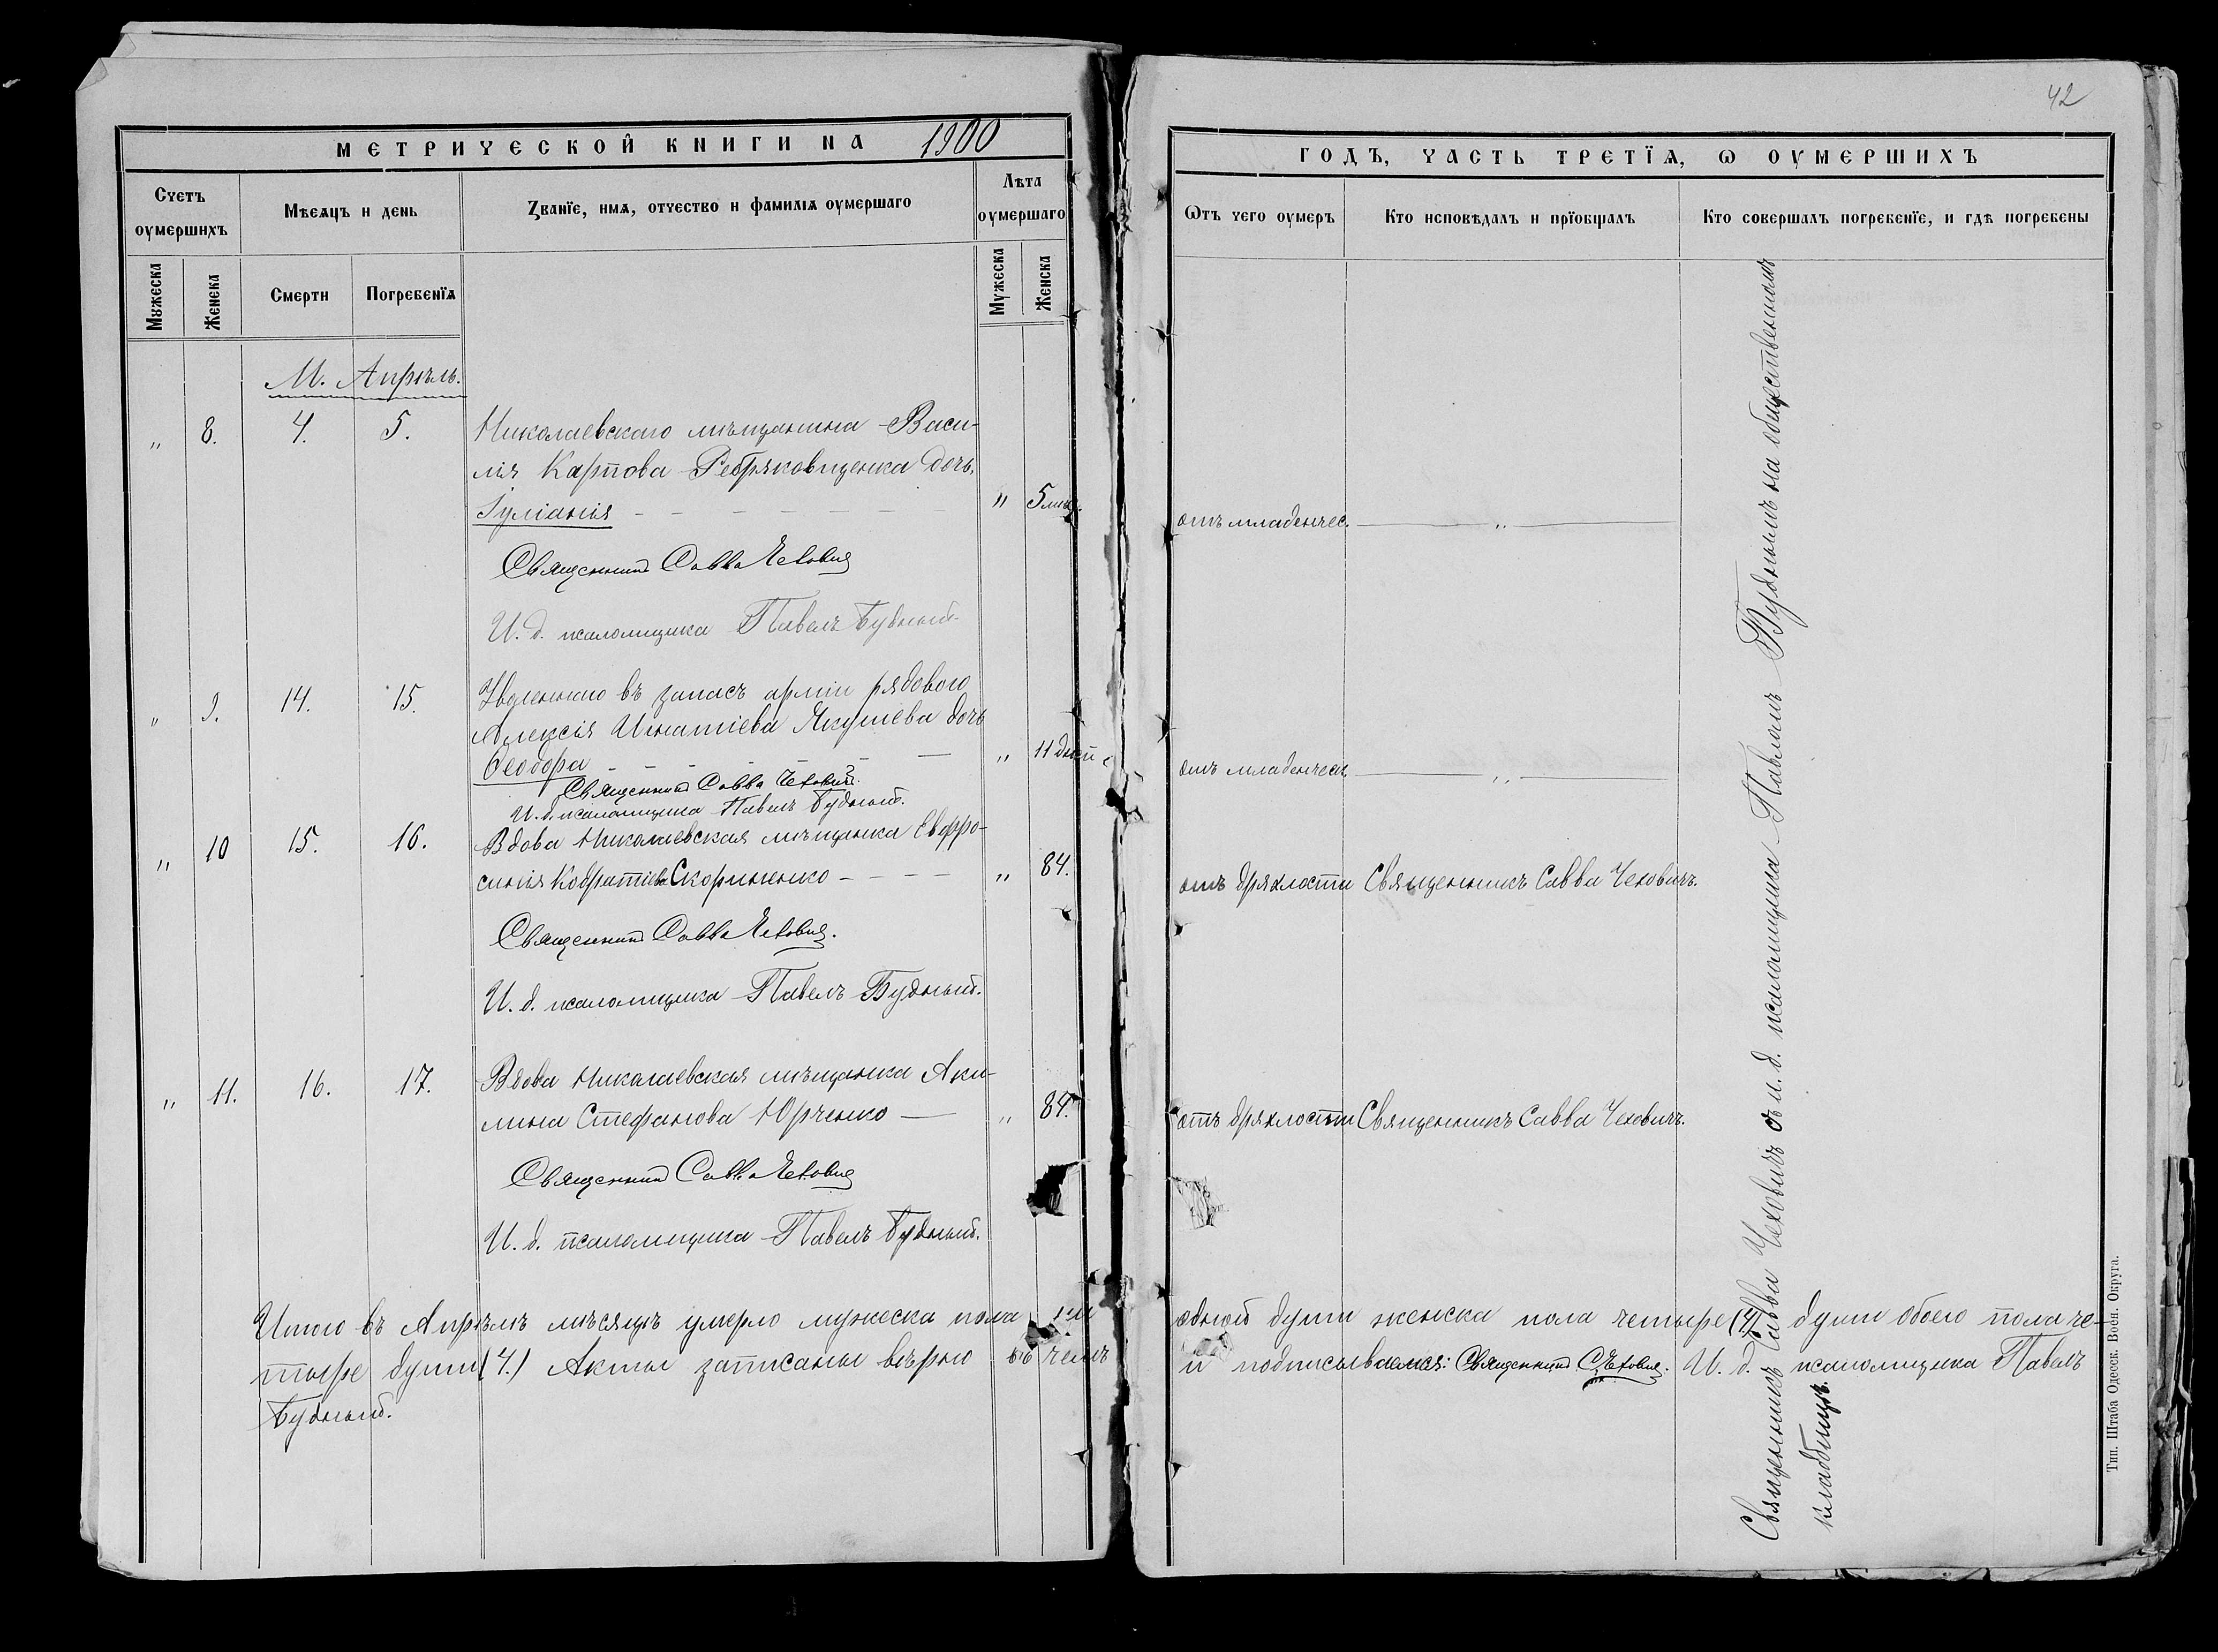 42
МЕТРИЧЕСКОЙ КНИГИ НА 1900
ГОДЪ, ЧАСТЬ ТРЕТЇѦ, Ѡ ОУМЕРШИХЪ
Счетъ оумершихъ
Мѣсѧцъ и день
Званїе, имѧ, отчество и фамилїѧ оумершаго
Лѣта оумершаго
Ѿтъ чего оумеръ
Кто исповѣдалъ и прїобщалъ
Кто совершалъ погребенїе, и гдѣ погребены
Мужеска
Женска
Смерти
Погребенїѧ
Мужеска
Женска
М. Апрѣль.
„ 8. 4. 5. Николаевскаго мѣщанина Васи-
лія Карпова Ребряковщенка дочь,
Іуліанія „ 5 мѣс. отъ младенчес. „
Священникъ Савва Чеховичъ
И. д. псаломщика Павелъ Будный.
„ 9. 14. 15. Уволеннаго въ запасъ арміи рядового
Алексія Игнатіева Якушева дочь
Ѳеодора „ 11 дней отъ младенческ. „
Священникъ Савва Чеховичъ.
И. д. псаломщика Павелъ Будный.
„ 10 15. 16. Вдова Николаевская мѣщанка Евфро-
синія Кодратіева Скориненко „ 84. отъ дряхлости Священникъ Савва Чеховичъ.
Священникъ Савва Чеховичъ.
И. д. псаломщика Павелъ Будный.
„ 11. 16. 17. Вдова Николаевская мѣщанка Аки-
лина Стефанова Юрченко „ 84. отъ дряхлости Священникъ Савва Чеховичъ.
Священникъ Савва Чеховичъ
И. д. псаломщика Павелъ Будный.
Священникъ Савва Чеховичъ съ и. д. псаломщика Павломъ Буднымъ на общественномъ
кладбищѣ.
Итого въ Апрѣлѣ мѣсяцѣ умерло мужеска пола ни одной души женска пола четыре (4) души обоего пола че-
тыре души (4.) Акты записаны вѣрно въ чемъ и подписываемся: Священникъ С. Чеховичъ. И. д. псаломщика Павелъ
Будный.
Тип. Штаба Одесск. Воен. Округа.